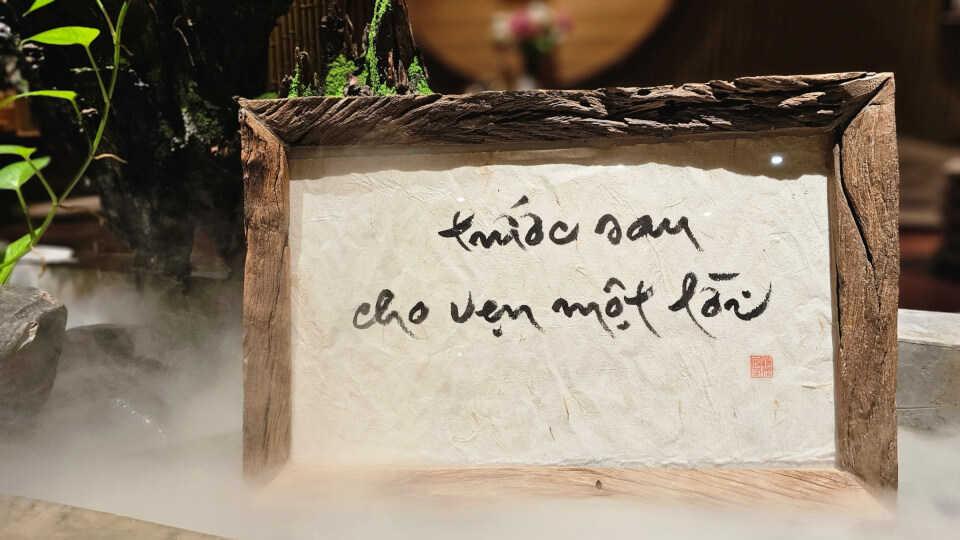 trước sau
cho vẹn một lời